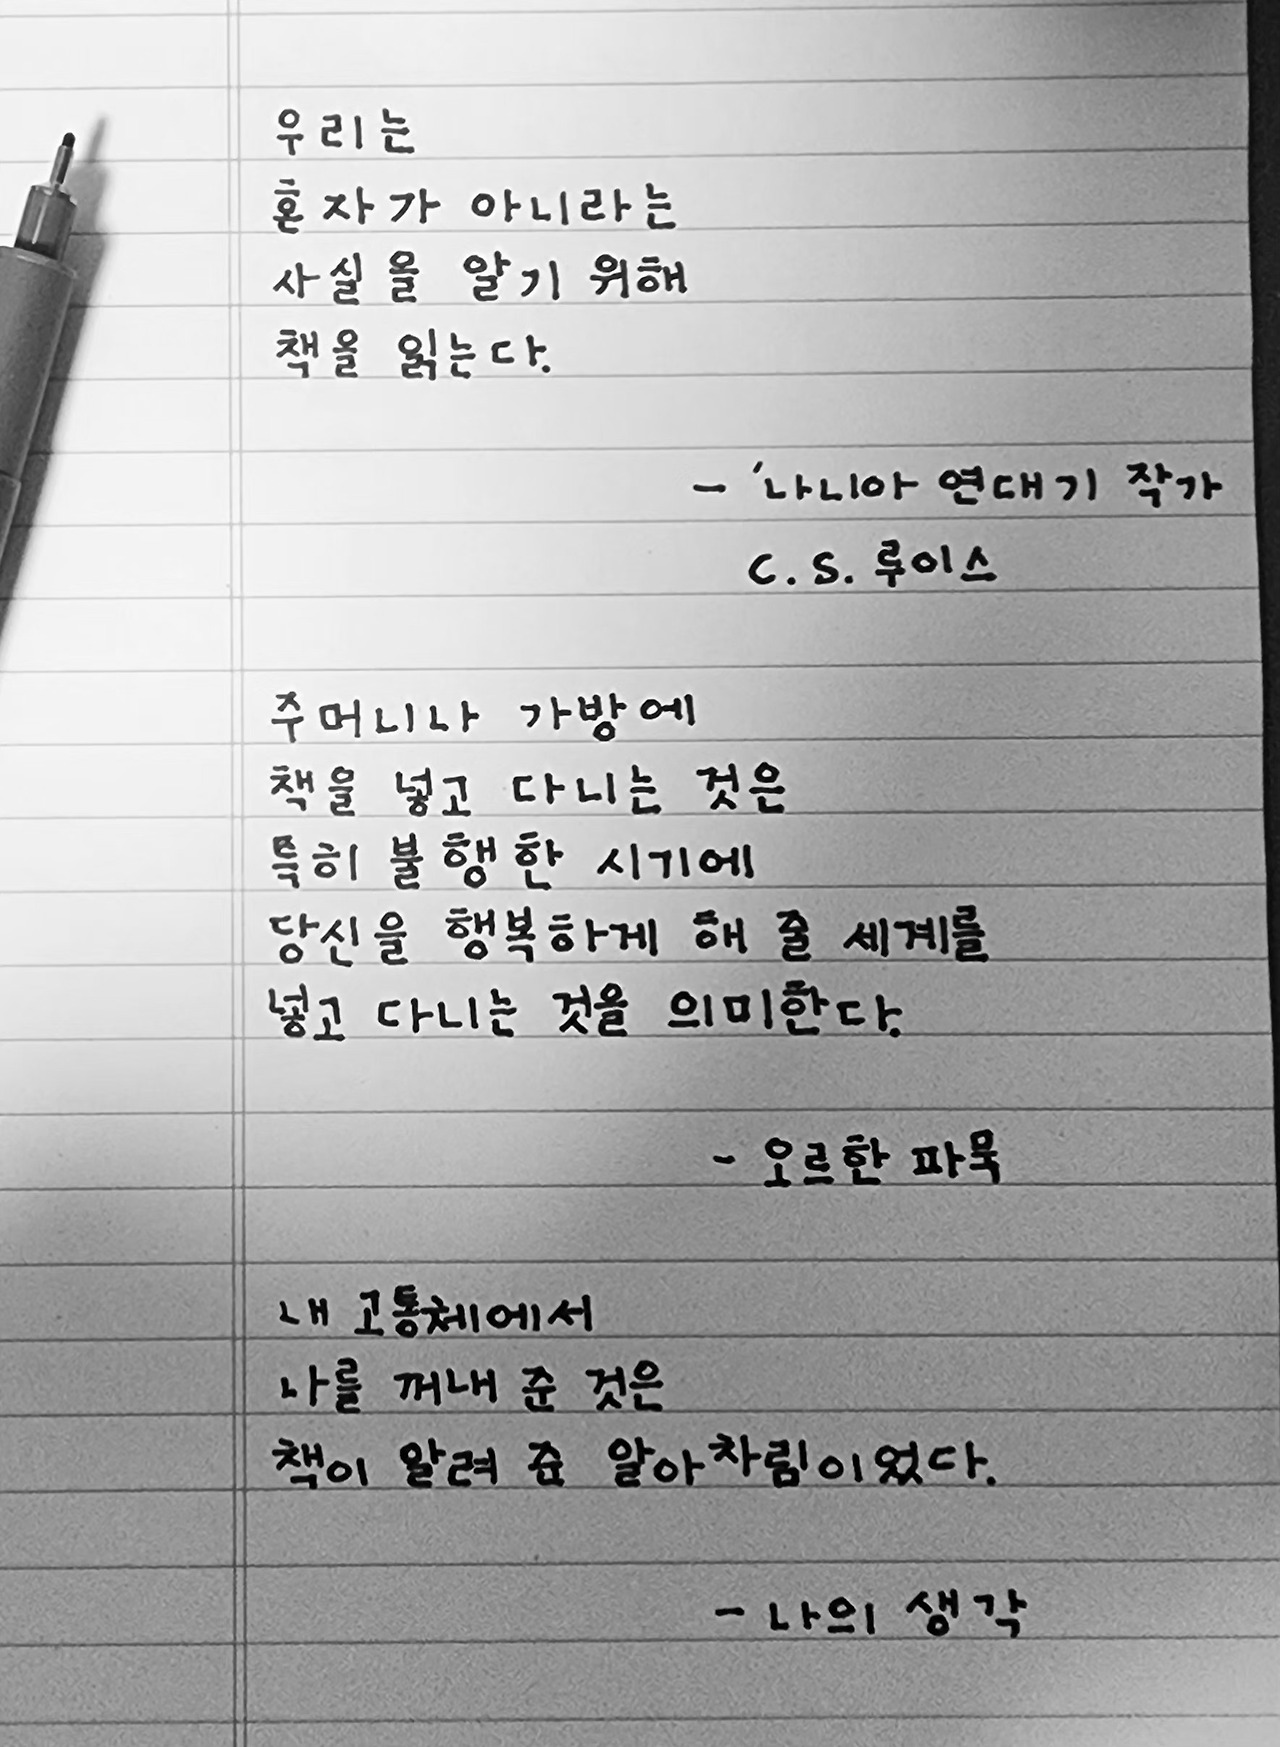 우리는
혼자가 아니라는
사실을 알기 위해
책을 읽는다.
- '나니아 연대기 작가
C.S. 루이스
주머니나 가방에
책을 넣고 다니는 것은
특히 불행한 시기에
당신을 행복하게 해 줄 세계를
넣고 다니는 것을 의미한다.
- 오르한 파묵
내 고통체에서
나를 꺼내 준 것은
책이 알려 준 알아차림이었다.
- 나의 생각